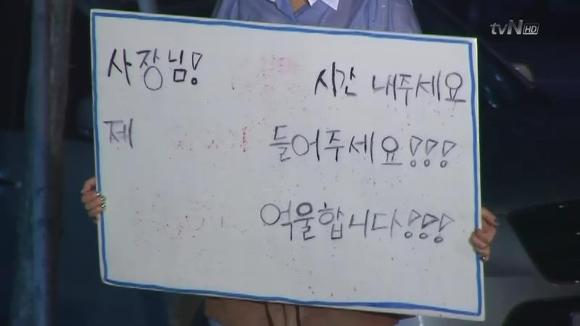 tvN HD
사장님! 시간 내주세요
제 들어주세요!!!
억울합니다!!!